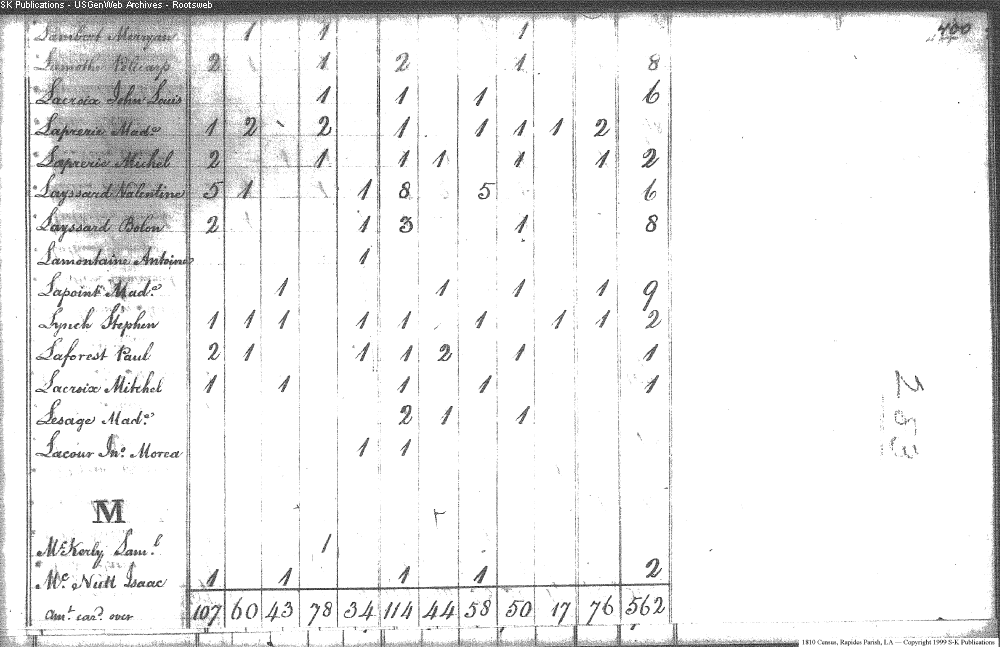 SK Publications - USGenWeb Archives - Rootsweb
400
Lambert Merryan 1 1 1
Lamothe Policarp 2 1 2 1 8
Lacroix John Louis 1 1 1 6
Laprerie Madᵉ 1 2 2 1 1 1 1 2
Laprerie Michel 2 1 1 1 1 1 2
Layssard Valentine 5 1 1 8 5 6
Layssard Bolon 2 1 3 1 8
Lamontaine Antoine 1
Lapoint Madᵉ 1 1 1 1 9
Lynch Stephen 1 1 1 1 1 1 1 1 2
Laforest Paul 2 1 1 1 2 1 1
Lacroix Mitchel 1 1 1 1 1
Lesage Madᵉ 2 1 1
Lacour Jnᵒ Morea 1 1
253
M
McKerly Samˡ 1
Mc Nutt Isaac 1 1 1 1 2
Amᵗ carᵈ over 107 60 43 78 34 114 44 58 50 17 76 562
1810 Census, Rapides Parish, LA — Copyright 1999 S-K Publications